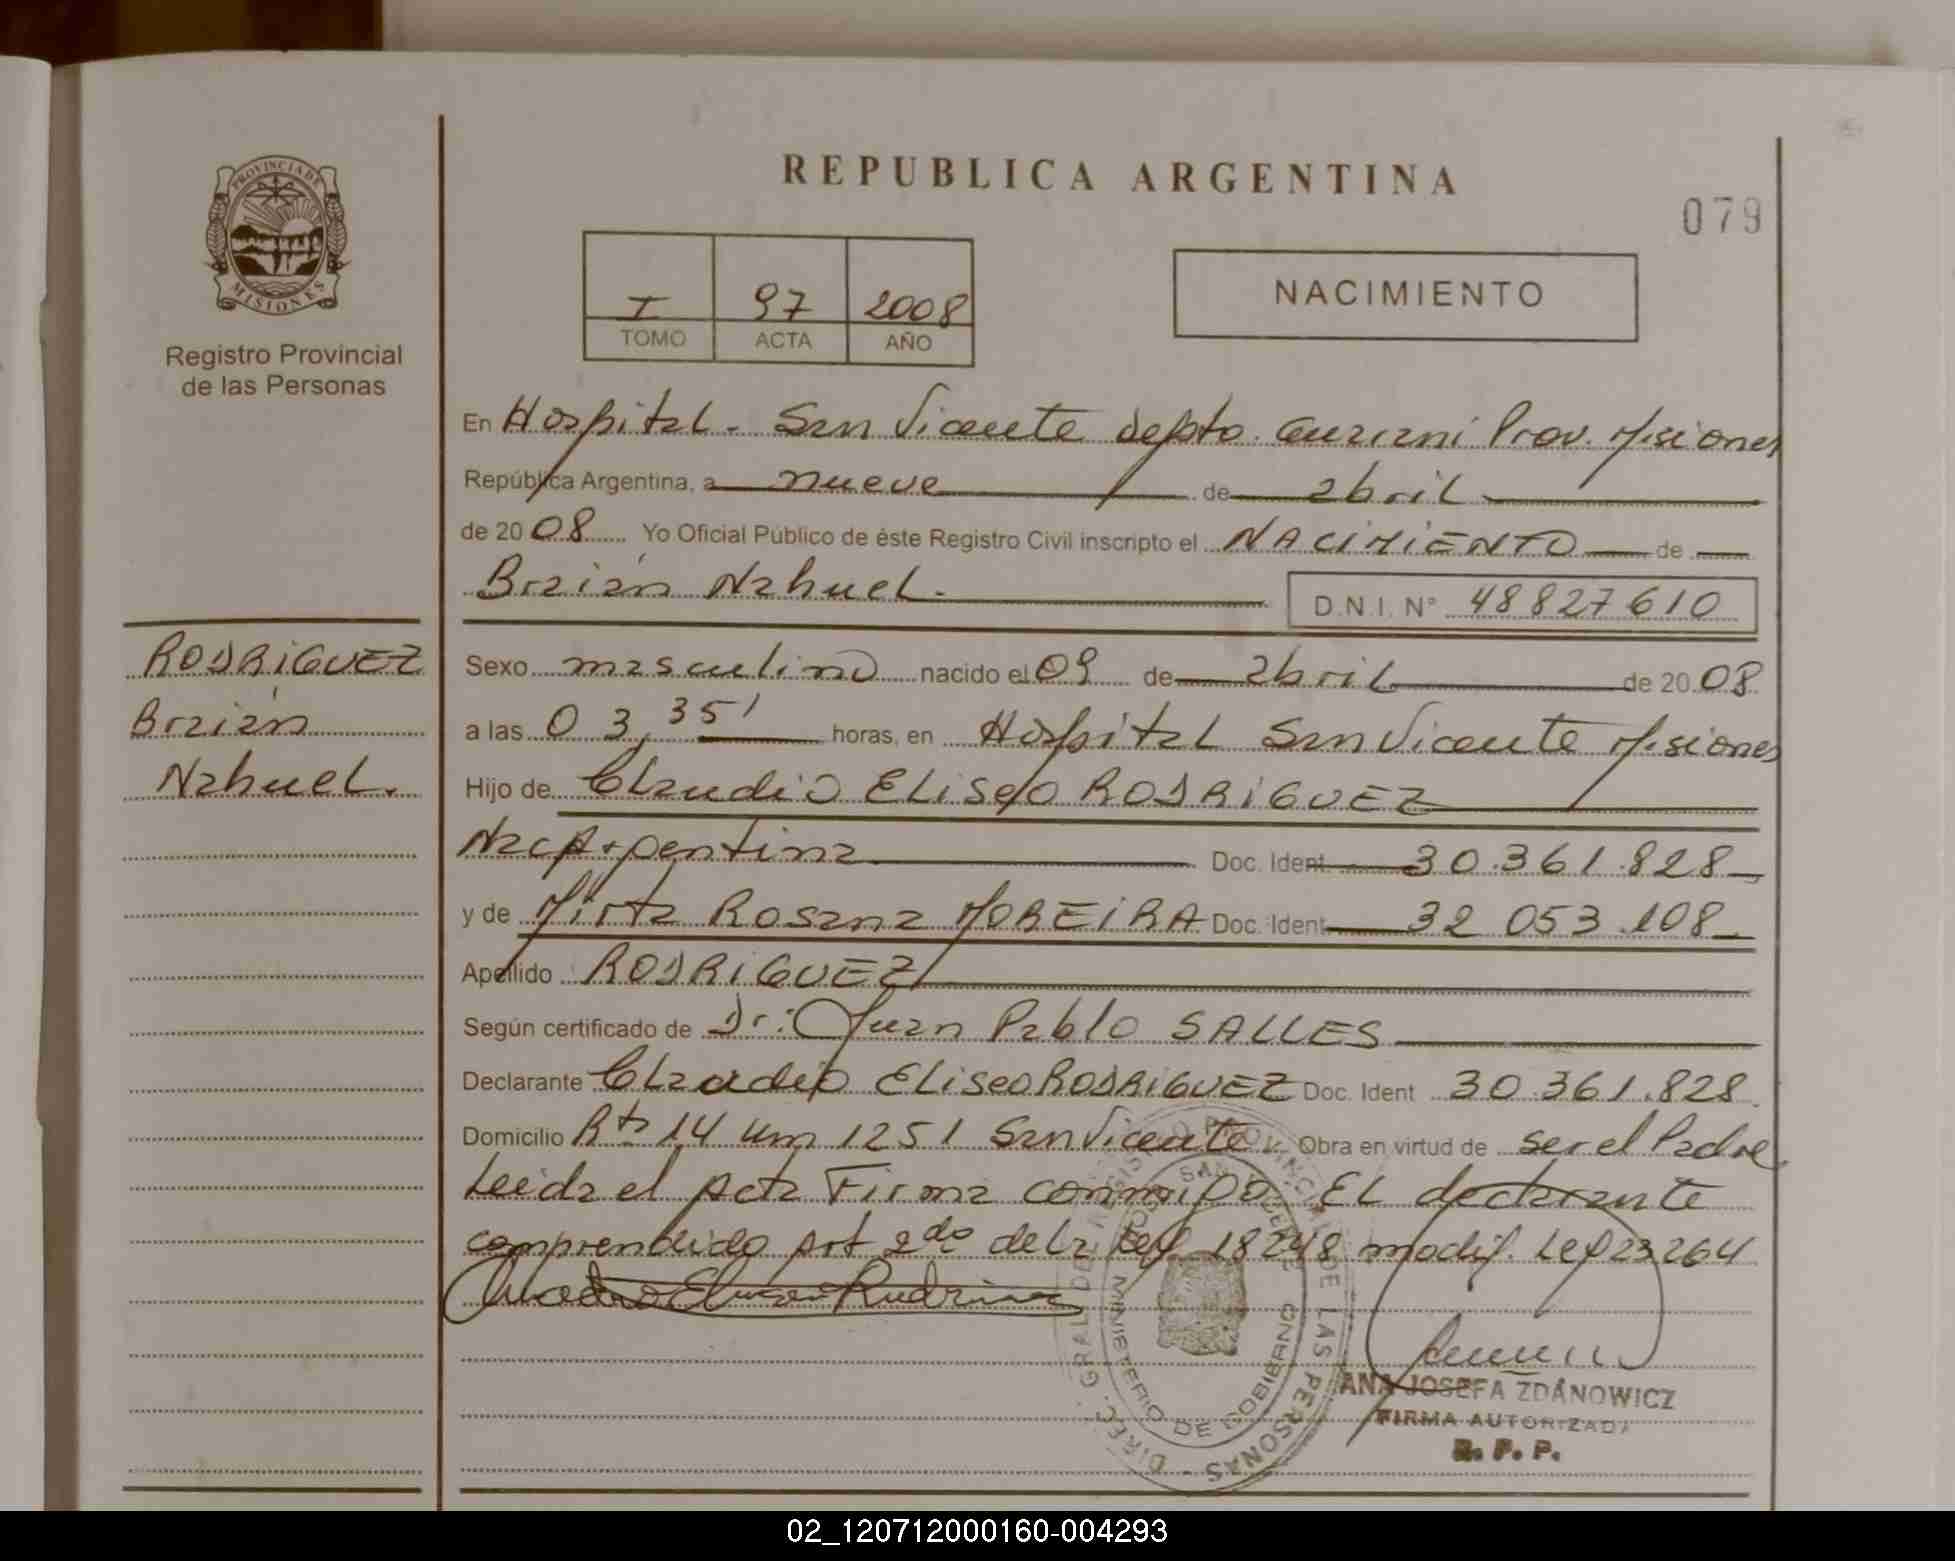 REPUBLICA ARGENTINA
079
PROVINCIA DE
MISIONES
Registro Provincial
de las Personas
I 97 2008
TOMO ACTA AÑO
NACIMIENTO
En Hospital - San Vicente depto. Guarani Prov. Misiones
República Argentina, a nueve de abril
de 2008 Yo Oficial Público de éste Registro Civil inscripto el NACIMIENTO de
Braian Nahuel.
D.N.I. N° 48827610
RODRIGUEZ
Braian
Nahuel.
Sexo masculino nacido el 09 de abril de 2008
a las 03,35' horas, en Hospital San Vicente Misiones
Hijo de Claudio Eliseo RODRIGUEZ
Nac Argentina Doc. Ident. 30.361.828
y de Mirta Rosana MOREIRA Doc. Ident 32 053.108
Apellido RODRIGUEZ
Según certificado de Dr: Juan Pablo SALLES
Declarante Claudio Eliseo RODRIGUEZ Doc. Ident 30.361.828
Domicilio Rta 14 km 1251 San Vicente Obra en virtud de ser el Padre
Leida el Acta Firma conmigo EL declarante
comprendido Art 2do de la Ley 18248 modif. Ley 23264
DIREC. GRAL DEL REGISTRO PROVINCIAL DE LAS PERSONAS
MINISTERIO DE GOBIERNO
ANA JOSEFA ZDANOWICZ
FIRMA AUTORIZADA
R. P. P.
02_120712000160-004293